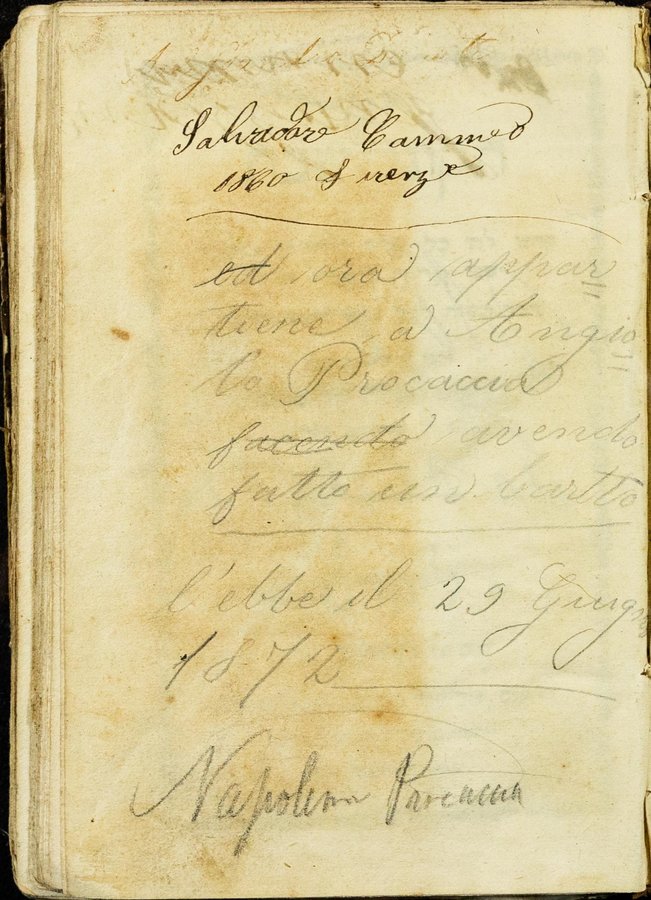 Salvadore Cammeo
1860 Firenze
ed ora appar
tiene a Angio
la Procaccia
facendo avendo
fatto un bartto
l'ebbe il 29 Giugno
1872
Napoleone Procaccia